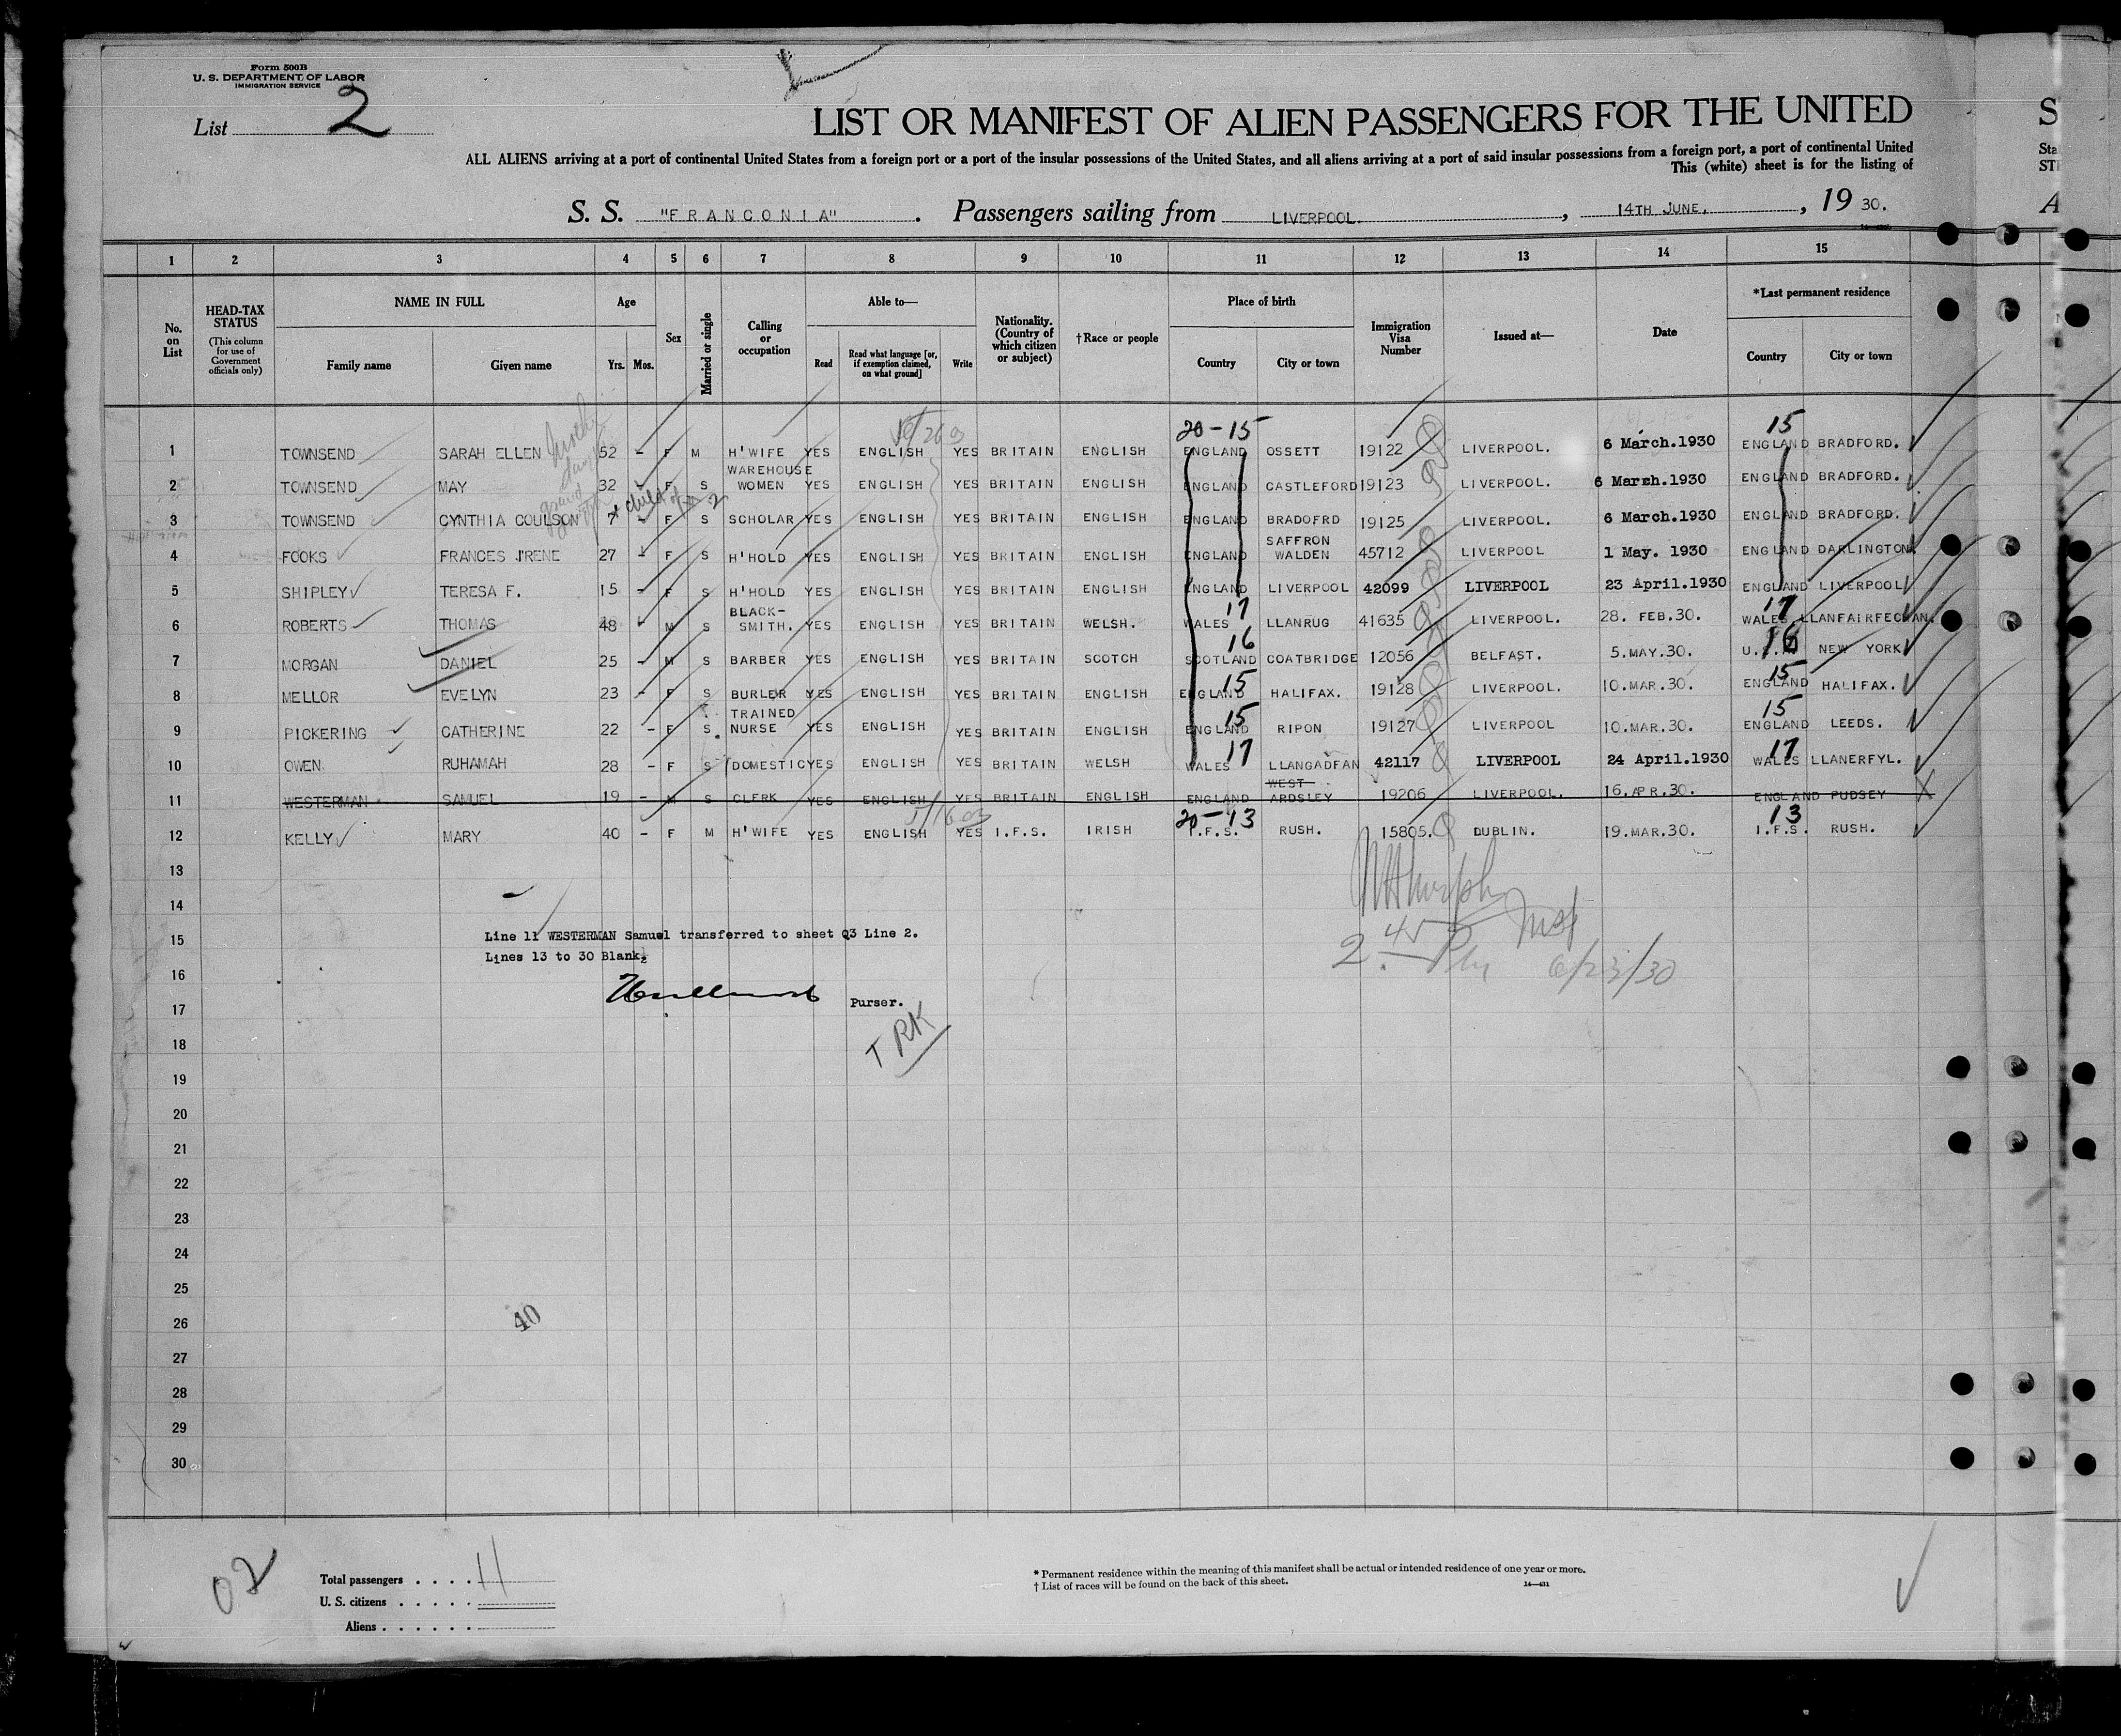 Form 500B
U. S. DEPARTMENT OF LABOR
IMMIGRATION SERVICE
List 2
LIST OR MANIFEST OF ALIEN PASSENGERS FOR THE UNITED
S
ALL ALIENS arriving at a port of continental United States from a foreign port or a port of the insular possessions of the United States, and all aliens arriving at a port of said insular possessions from a foreign port, a port of continental United
Sta
This (white) sheet is for the listing of
S. S. "FRANCONIA" . Passengers sailing from LIVERPOOL. , 14TH JUNE, , 19 30.
A
1 2 3 4 5 6 7 8 9 10 11 12 13 14 15
No. on List
HEAD-TAX STATUS
(This column for use of Government officials only)
NAME IN FULL
Family name Given name
Age
Yrs. Mos.
Sex
Married or single
Calling or occupation
Able to—
Read
Read what language [or, if exemption claimed, on what ground]
Write
Nationality. (Country of which citizen or subject)
†Race or people
Place of birth
Country City or town
Immigration Visa Number
Issued at—
Date
*Last permanent residence
Country City or town
20-15 15
1 TOWNSEND SARAH ELLEN 52 - F M H'WIFE YES ENGLISH YES BRITAIN ENGLISH ENGLAND OSSETT 19122 LIVERPOOL. 6 March.1930 ENGLAND BRADFORD.
2 TOWNSEND MAY 32 - F S WAREHOUSE WOMEN YES ENGLISH YES BRITAIN ENGLISH ENGLAND CASTLEFORD 19123 LIVERPOOL. 6 March.1930 ENGLAND BRADFORD.
3 TOWNSEND CYNTHIA COULSON 7 - F S SCHOLAR YES ENGLISH YES BRITAIN ENGLISH ENGLAND BRADOFRD 19125 LIVERPOOL. 6 March.1930 ENGLAND BRADFORD.
4 FOOKS FRANCES IRENE 27 - F S H'HOLD YES ENGLISH YES BRITAIN ENGLISH ENGLAND SAFFRON WALDEN 45712 LIVERPOOL 1 May. 1930 ENGLAND DARLINGTON.
5 SHIPLEY TERESA F. 15 - F S H'HOLD YES ENGLISH YES BRITAIN ENGLISH ENGLAND LIVERPOOL 42099 LIVERPOOL 23 April.1930 ENGLAND LIVERPOOL
17 17
6 ROBERTS THOMAS 48 - M S BLACK-SMITH. YES ENGLISH YES BRITAIN WELSH. WALES LLANRUG 41635 LIVERPOOL. 28. FEB.30. WALES LLANFAIRFECHAN.
16 16
7 MORGAN DANIEL 25 - M S BARBER YES ENGLISH YES BRITAIN SCOTCH SCOTLAND COATBRIDGE 12056 BELFAST. 5.MAY.30. U.S.A. NEW YORK
15 15
8 MELLOR EVELYN 23 - F S BURLER YES ENGLISH YES BRITAIN ENGLISH ENGLAND HALIFAX. 19128 LIVERPOOL. 10.MAR.30. ENGLAND HALIFAX.
15 15
9 PICKERING CATHERINE 22 - F S. TRAINED NURSE YES ENGLISH YES BRITAIN ENGLISH ENGLAND RIPON 19127 LIVERPOOL 10.MAR.30. ENGLAND LEEDS.
17 17
10 OWEN RUHAMAH 28 - F S DOMESTIC YES ENGLISH YES BRITAIN WELSH WALES LLANGADFAN 42117 LIVERPOOL 24 April.1930 WALES LLANERFYL.
11 WESTERMAN SAMUEL 19 - M S CLERK YES ENGLISH YES BRITAIN ENGLISH ENGLAND WEST ARDSLEY 19206 LIVERPOOL. 16.APR.30. ENGLAND PUDSEY X
20-13 13
12 KELLY MARY 40 - F M H'WIFE YES ENGLISH YES I.F.S. IRISH I.F.S. RUSH. 15805. DUBLIN. 19.MAR.30. I.F.S. RUSH.
13
14
15
Line 11 WESTERMAN Samuel transferred to sheet Q3 Line 2.
Lines 13 to 30 Blank.
2 45 Pm 6/23/30
16
Purser.
17
T RK
18
19
20
21
22
23
24
25
26
40
27
28
29
30
02
Total passengers . . . . 11
U. S. citizens . . . . .
Aliens . . . . . .
* Permanent residence within the meaning of this manifest shall be actual or intended residence of one year or more.
† List of races will be found on the back of this sheet.
14—431